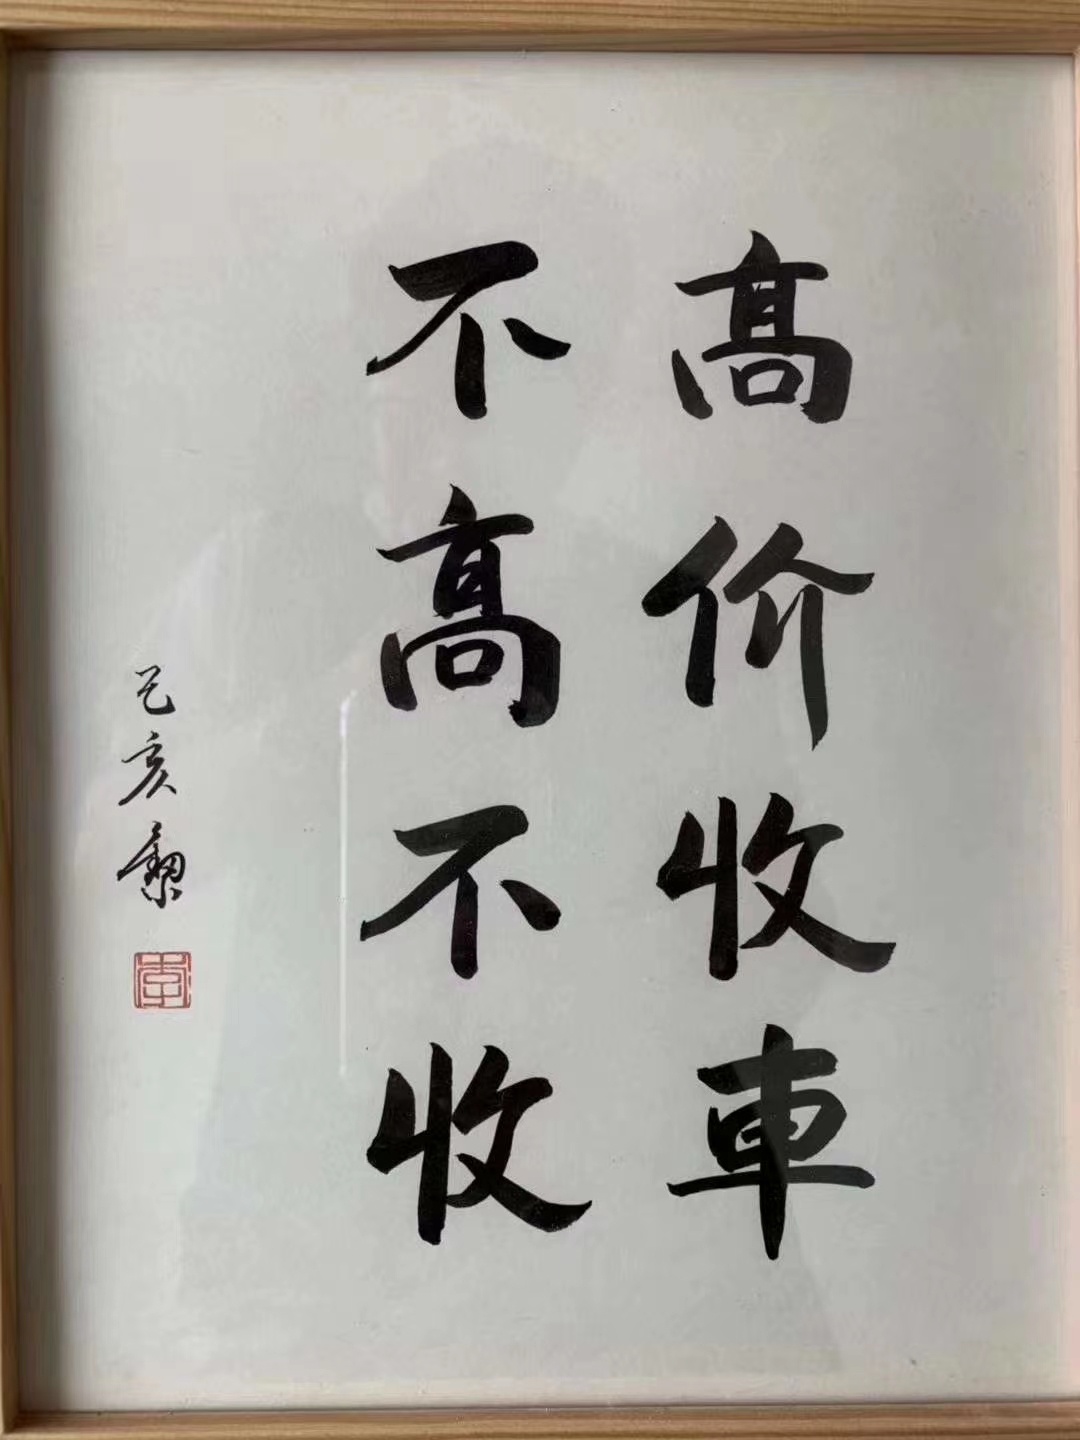 髙价收車
不髙不收
乙亥